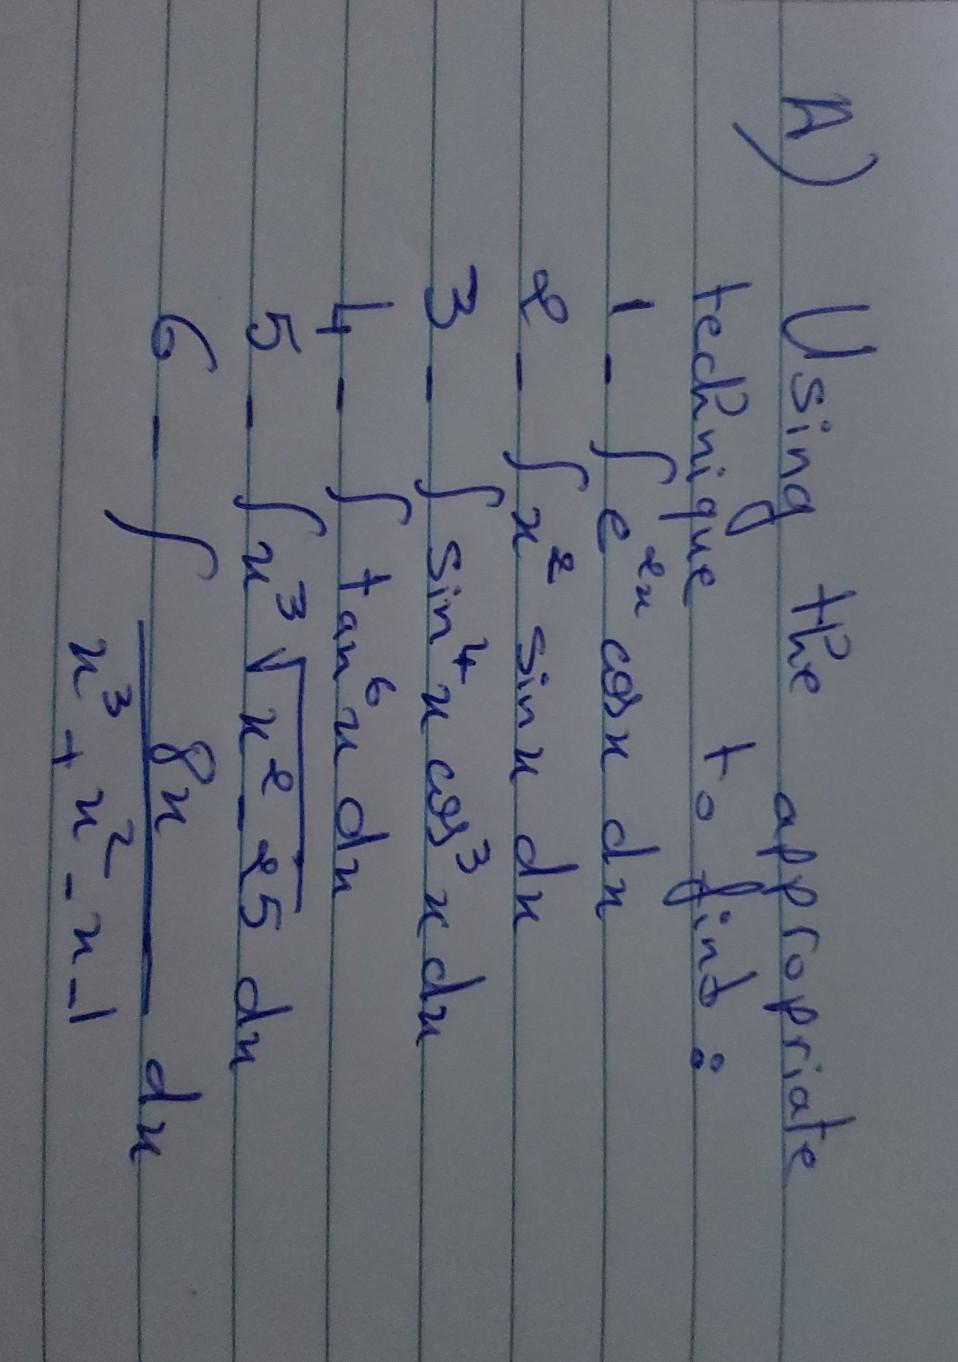 A) Using the appropriate
technique to find:
1 - ∫ e^2x cosx dx
2 - ∫ x^2 sinx dx
3 - ∫ sin^4 x cos^3 x dx
4 - ∫ tan^6 x dx
5 - ∫ x^3 √(x^2 - 25) dx
6 - ∫ 8x / (x^3 + x^2 - x - 1) dx